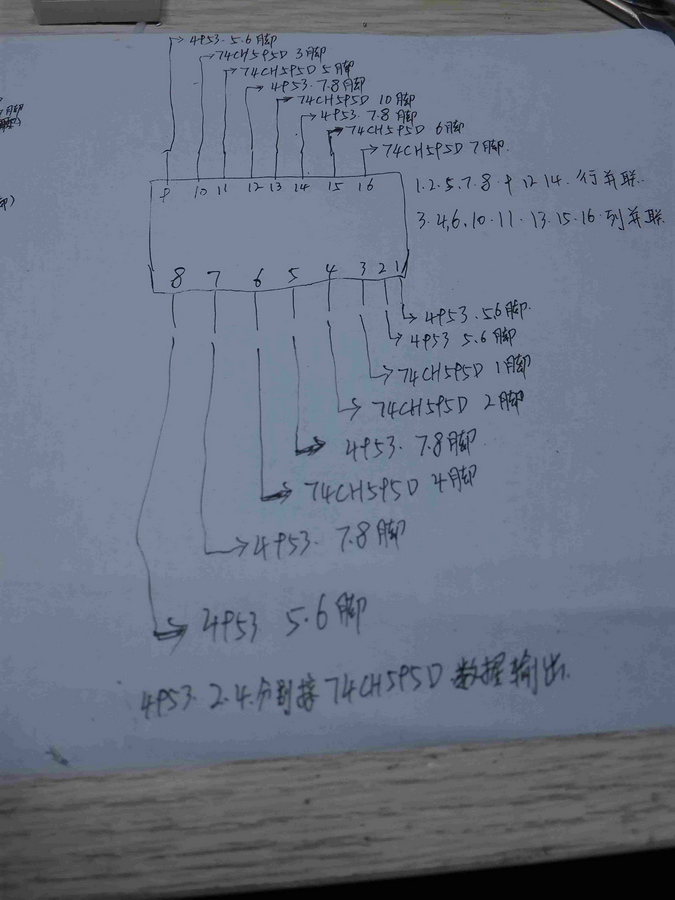 4953.5.6脚
74CH595D 3脚
74CH595D 5脚
4953.7.8脚
74CH595D 10脚
4953.7.8脚
74CH595D 6脚
74CH595D 7脚.
9 10 11 12 13 14 15 16
1.2.5.7.8.9 12 14.行并联.
3.4,6.10.11.13.15.16.列并联
8 7 6 5 4 3 2 1
4953.56脚
4953 5.6脚
74CH595D 1脚
74CH595D 2脚
4953.7.8脚
74CH595D 4脚
4953.7.8脚
4953 5.6脚
4953.2.4.分别接74CH595D数据输出.